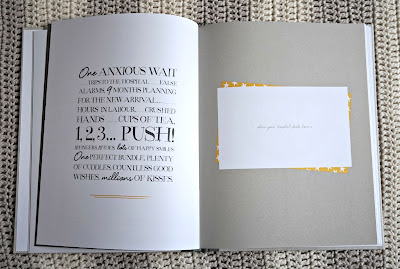 One ANXIOUS WAIT
TRIPS TO THE HOSPITAL..... FALSE
ALARMS, 9 MONTHS PLANNING
FOR THE NEW ARRIVAL.......
HOURS IN LABOUR...... CRUSHED
HANDS ..... CUPS OF TEA,
1, 2, 3... PUSH!
lots OF HAPPY SMILES
One PERFECT BUNDLE, PLENTY
OF CUDDLES, COUNTLESS GOOD
WISHES, millions OF KISSES.